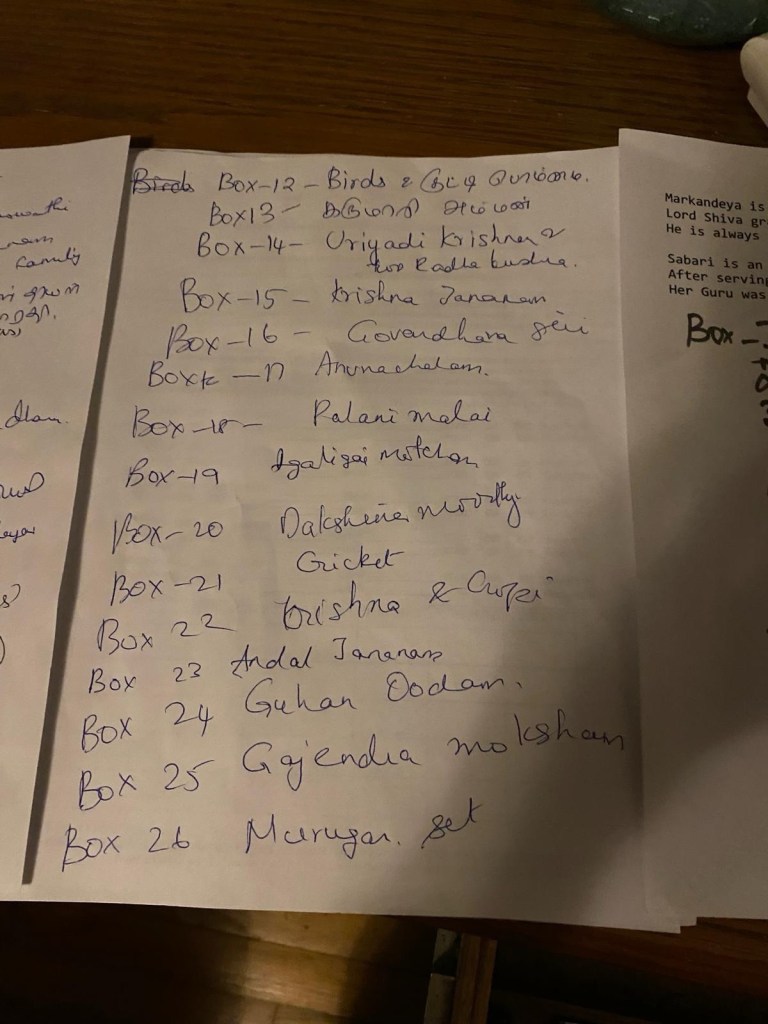 Family
dham.
Birds Box-12 - Birds & குட்டி பொம்மை.
Box13 - கருமாரி அம்மன்
Box-14 - Uriyadi Krishna &
Radha
Box-15 - Krishna Jananam
Box-16 - Govardhana giri
Box - 17 Arunachalam.
Box-18 - Palani malai
Box-19 Agaligai motcham
Box-20 Dakshina moorthy
Box-21 Cricket
Box 22 Krishna & Gopi
Box 23 Andal Jananam
Box 24 Guhan Oodam.
Box 25 Gajendra moksham
Box 26 Murugan. set
Markandeya is
Lord Shiva
He is always
Sabari is an
After serving
Her Guru was
Box -